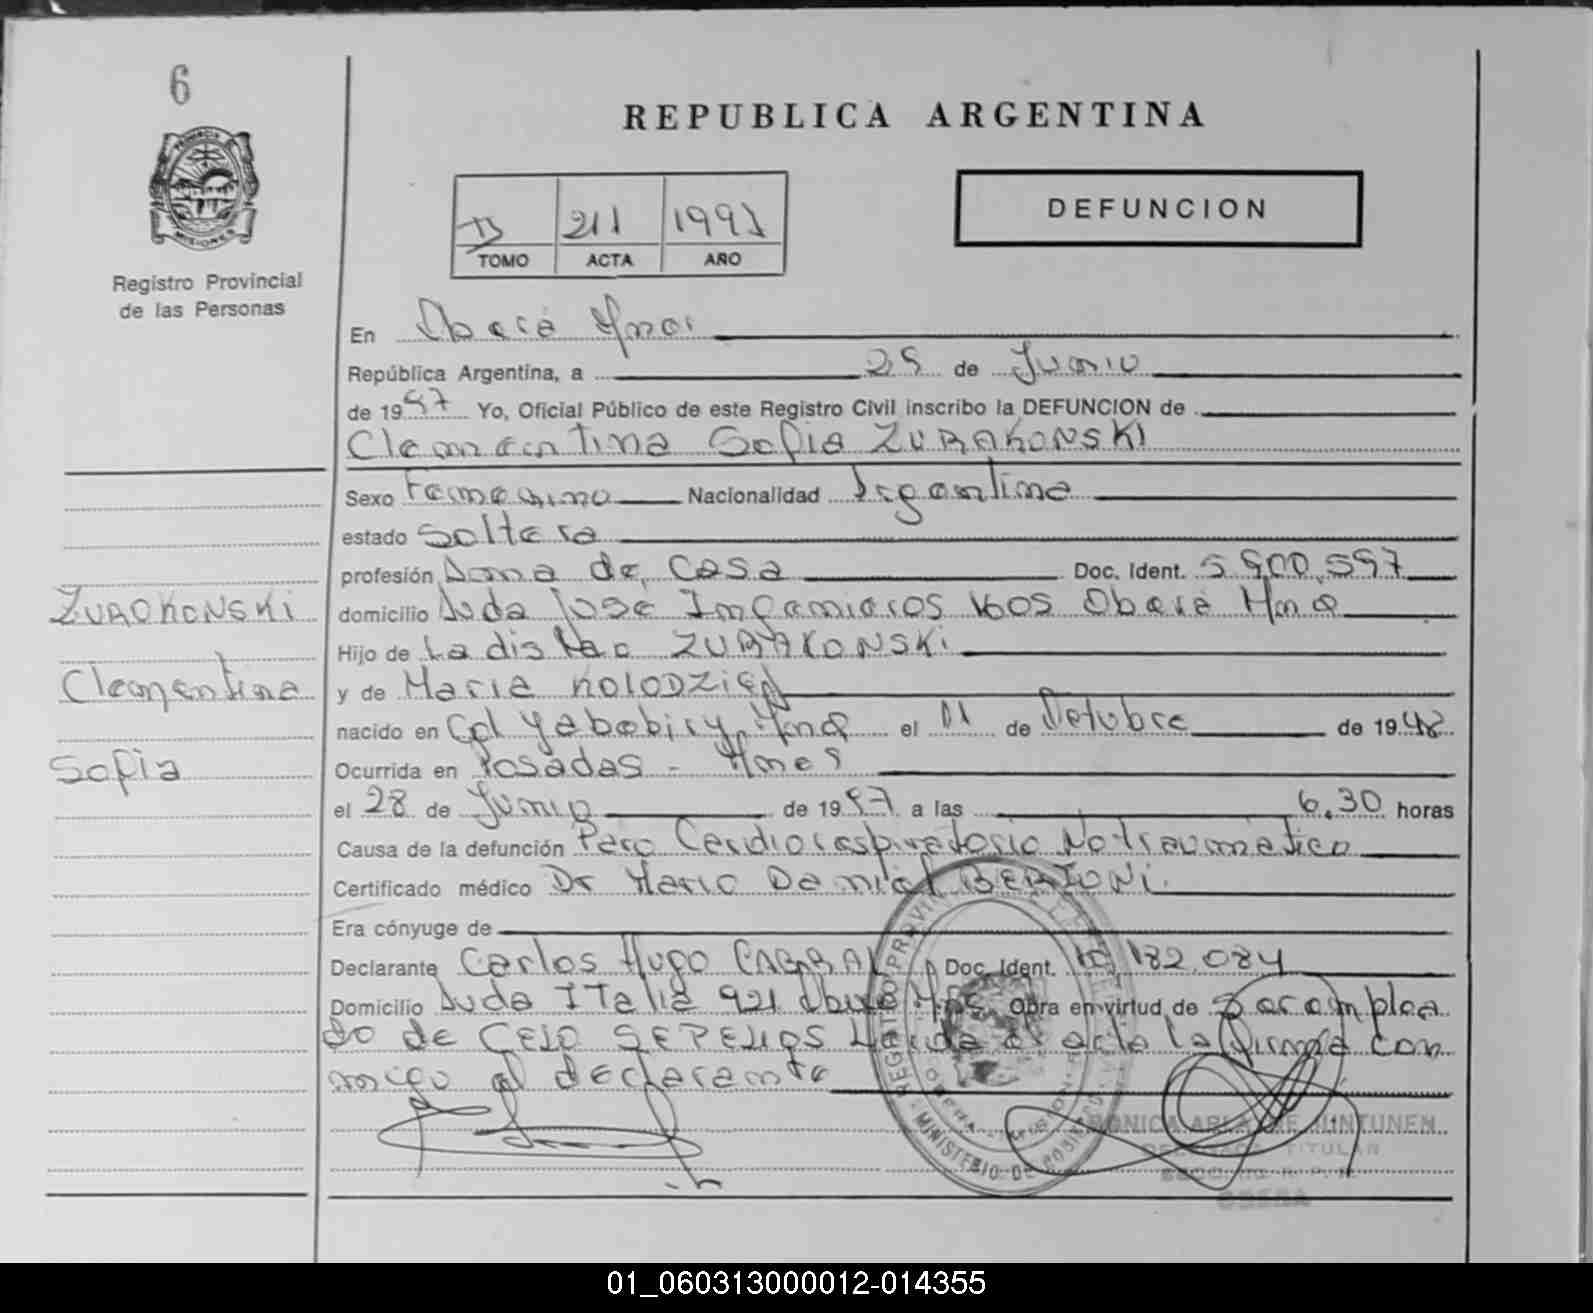 6
PROVINCIA
MISIONES
Registro Provincial
de las Personas
REPUBLICA ARGENTINA
211 1991
TOMO ACTA AÑO
DEFUNCION
En Oberá Mnes
República Argentina, a 29 de Junio
de 1997 Yo, Oficial Público de este Registro Civil inscribo la DEFUNCION de
Clementina Sofia ZURAKONSKI
Sexo Femenino Nacionalidad Argentina
estado Soltera
profesión Ama de Casa Doc. Ident. 5.900.597
domicilio Avda José Ingenieros 1605 Oberá Mnes
Hijo de Ladislao ZURAKONSKI
y de Maria KOLODZIEJ
nacido en Col Yabebiry Mnes el 01 de Octubre de 1948
Ocurrida en Posadas - Mnes
el 28 de Junio de 1997 a las 6,30 horas
Causa de la defunción Paro Cardiorespiratorio No traumatico
Certificado médico Dr Mario Daniel BERTONI
Era cónyuge de
Declarante Carlos Hugo CABRAL Doc. Ident. 182.084
Domicilio Avda Italia 921 Oberá Mnes Obra en virtud de Ser emplea
do de CELO SEPELIOS Leida el acta la firma con
migo el declarante
ZUROKONSKI
Clementina
Sofia
MINISTERIO DE GOBIERNO
TITULAR
OBERA
01_060313000012-014355